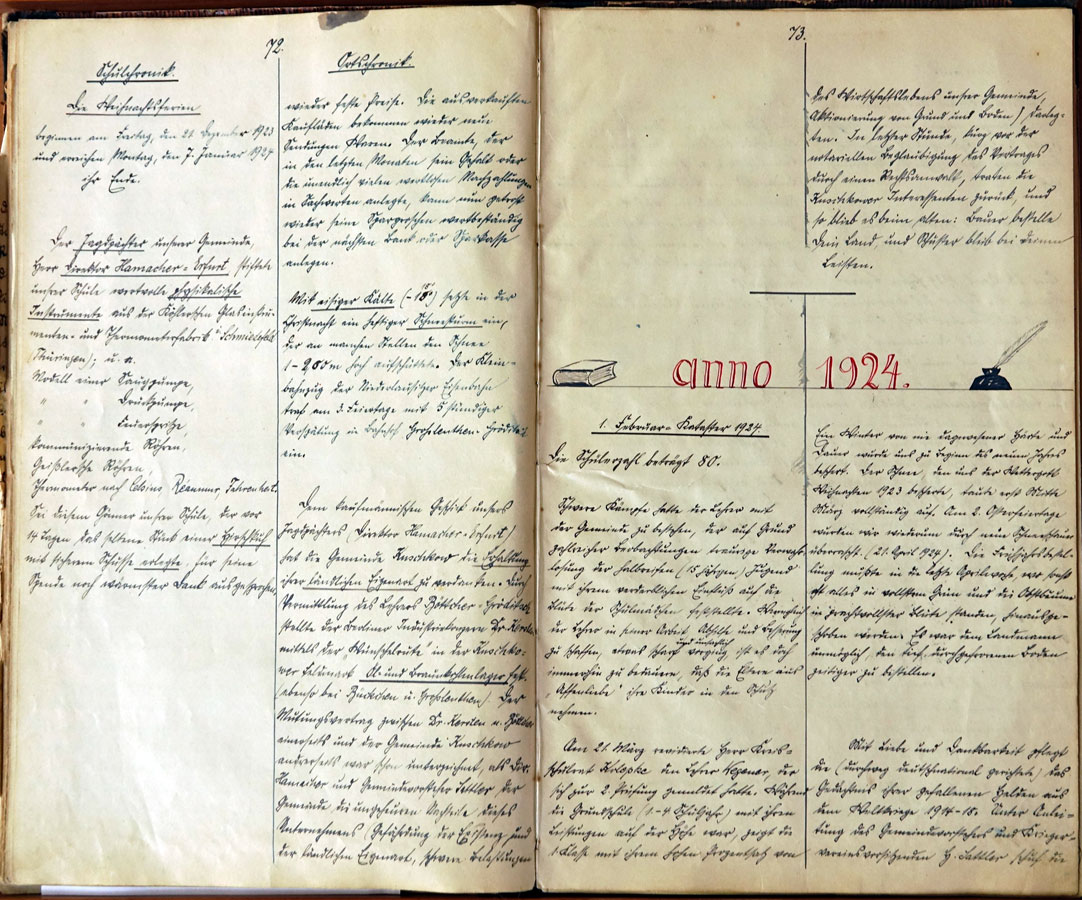 72.
Schulchronik.
Die Weihnachtsferien
beginnen am Freitag, den 21. Dezember 1923
und erreichen Montag, den 7. Januar 1924
ihr Ende.
Der Jagdpächter unserer Gemeinde,
Herr Direktor Hamacher-Erfurt stiftete
unsrer Schule wertvolle physikalische
Instrumente aus der Glasinstru-
menten- und Thermometerfabrik Schmiedefeld
(Thüringen); u. a.
Modell einer Saugpumpe,
" " Druckpumpe,
" " Feuerspritze,
kommunizierende Röhren,
Geißlersche Röhren,
Thermometer nach Celsius Reaumur, Fahrenheit.
Sei diesem Gönner unsrer Schule, der vor
14 Tagen das seltene Stück einer Hirschkuh
mit sicherem Schusse erlegte, für seine
Spende noch wärmster Dank ausgesprochen.
Ortschronik.
wieder feste Preise. Die ausverkauften
Kaufläden bekommen wieder neue
Sendungen Waren. Der Beamte, der
in den letzten Monaten sein Gehalt oder
die unendlich vielen wertlosen Nachzahlungen
in Sachwerten anlegte, kann nun getrost
wieder seine Spargroschen wertbeständig
bei der nächsten Bank oder Sparkasse
anlegen.
Mit eisiger Kälte (-18°) setzte in der
Christnacht ein heftiger Schneesturm ein,
der an manchen Stellen den Schnee
1-2,00 m hoch aufschüttete. Der Klein-
bahnzug der Niederlausitzer Eisenbahn
traf am 3. Feiertage mit 5 stündiger
Verspätung in Bahnhof Groslenthen-Gröditsch
ein.
Dem kaufmännischen Geschick unsers
Jagdpächters, Direktor Hamacher-Erfurt,
hat die Gemeinde Kuschkow die Erhaltung
ihrer ländlichen Eigenart zu verdanken. Durch
Vermittlung des Lehrers Böttcher-Gröditsch
stellte der Berliner Industriekonzern Dr. Kersten
mittels der "Wünschelrute" in der Kuschko-
wer Feldmark Öl- und Braunkohlenlager fest.
(ebenso bei Bückchen u. Groslenthen). Der
Mutungsvertrag zwischen Dr. Kersten u. Böttcher
einerseits und der Gemeinde Kuschkow
andrerseits war schon unterzeichnet, als Dir.
Hamacher und Gemeindevorsteher Sattler, der
Gemeinde die ungeheuren Nachteile dieses
Unternehmens (Gefährdung der Existenz und
der ländlichen Eigenart, schwere Belastungen
73.
des Wirtschaftslebens unsrer Gemeinde,
Aktionierung von Grund und Boden) darleg-
ten. In letzter Stunde, kurz vor der
notariellen Beglaubigung des Vertrages
durch einen Rechtsanwalt, traten die
Kuschkower Interessenten zurück, und
so blieb es beim alten: Bauer bestelle
dein Land, und Schuster bleib bei deinen
Leisten.
anno 1924.
1. Februar-Kataster 1924.
Die Schülerzahl beträgt 80.
Schwere Kämpfe hatte der Lehrer mit
der Gemeinde zu bestehen, der auf Grund
zahlreicher Beobachtungen traurige Verwahr-
losung der halbreifen (15 jährigen) Jugend
mit ihrem verderblichen Einfluß auf die
Leute der Schulmädchen feststellte. Wenngleich
der Lehrer in seiner Arbeit Abhilfe und Besserung
zu schaffen, etwas scharf und vorging ist es doch
immerhin zu bedauern, daß die Eltern aus
"Affenliebe" ihre Kinder in den Schutz
nehmen.
Am 21. März revidierte Herr Kreis-
schulrat den Lehrer der
sich zur 2. Prüfung gemeldet hatte. Während
die Grundschule (1-4 Schuljahr) mit ihren
Leistungen auf der Höhe war, zeigte die
1. Klasse mit ihrem hohen Prozentsatz von
Ein Winter von nie dagewesener Härte und
Dauer wurde uns zu Beginn des neuen Jahres
beschert. Der Schnee, den uns der Wettergott
Weihnachten 1923 bescherte, taute erst Mitte
März vollständig auf. Am 2. Osterfeiertage
wurden wir wiederum durch neue Schneeschauer
überrascht. (21. April 1924). Die Frühjahrsbestel-
lung mußte in die letzte Aprilwoche, wo sonst
oft alles in vollstem Grün und die Obstbäume
in prachtvollster Blüte standen, hinausge-
schoben werden. Es war dem Landmanne
unmöglich, den tief durchgefrorenen Boden
zeitiger zu bestellen.
Mit Liebe und Dankbarkeit pflegt
die (durchweg deutschnational gerichtete) das
Gedächtnis ihrer gefallenen Helden aus
dem Weltkriege 1914-18. Unter Anlei-
tung des Gemeindevorstehers und Krieger-
vereinsvorsitzenden H. Sattler schuf die